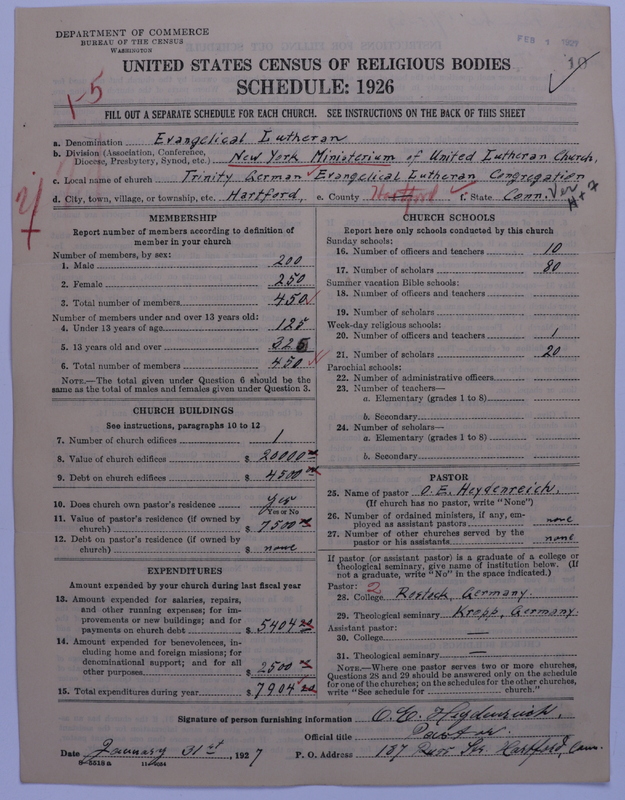 DEPARTMENT OF COMMERCE
BUREAU OF THE CENSUS
WASHINGTON
FEB 1 1927
10
UNITED STATES CENSUS OF RELIGIOUS BODIES
SCHEDULE: 1926
1-5
FILL OUT A SEPARATE SCHEDULE FOR EACH CHURCH. SEE INSTRUCTIONS ON THE BACK OF THIS SHEET
a. Denomination Evangelical Lutheran
b. Division (Association, Conference, Diocese, Presbytery, Synod, etc.) New York Ministerium of United Lutheran Church,
c. Local name of church Trinity German Evangelical Lutheran Congregation
d. City, town, village, or township, etc. Hartford, e. County Hartford f. State Conn.
MEMBERSHIP
Report number of members according to definition of
member in your church
Number of members, by sex:
1. Male 200
2. Female 250
3. Total number of members 450
Number of members under and over 13 years old:
4. Under 13 years of age 125
5. 13 years old and over 325
6. Total number of members 450
NOTE.—The total given under Question 6 should be the
same as the total of males and females given under Question 3.
CHURCH BUILDINGS
See instructions, paragraphs 10 to 12
7. Number of church edifices 1
8. Value of church edifices $ 20000
9. Debt on church edifices $ 4500
10. Does church own pastor's residence yes
Yes or No
11. Value of pastor's residence (if owned by
church) $ 7500
12. Debt on pastor's residence (if owned by
church) $ none
EXPENDITURES
Amount expended by your church during last fiscal year
13. Amount expended for salaries, repairs,
and other running expenses; for im-
provements or new buildings; and for
payments on church debt $ 5404
14. Amount expended for benevolences, in-
cluding home and foreign missions; for
denominational support; and for all
other purposes $ 2500
15. Total expenditures during year $ 7904
CHURCH SCHOOLS
Report here only schools conducted by this church
Sunday schools:
16. Number of officers and teachers 10
17. Number of scholars 80
Summer vacation Bible schools:
18. Number of officers and teachers
19. Number of scholars
Week-day religious schools:
20. Number of officers and teachers 1
21. Number of scholars 20
Parochial schools:
22. Number of administrative officers
23. Number of teachers—
a. Elementary (grades 1 to 8)
b. Secondary
24. Number of scholars—
a. Elementary (grades 1 to 8)
b. Secondary
PASTOR
25. Name of pastor O. E. Heydenreich,
(If church has no pastor, write "None")
26. Number of ordained ministers, if any, em-
ployed as assistant pastors none
27. Number of other churches served by the
pastor or his assistants none
If pastor (or assistant pastor) is a graduate of a college or
theological seminary, give name of institution below. (If
not a graduate, write "No" in the space indicated.)
Pastor: 2
28. College Rostock, Germany.
29. Theological seminary Kropp, Germany.
Assistant pastor:
30. College —
31. Theological seminary —
NOTE.—Where one pastor serves two or more churches,
Questions 28 and 29 should be answered only on the schedule
for one of the churches; on the schedules for the other churches,
write "See schedule for church."
Signature of person furnishing information O. E. Heydenreich,
Official title Pastor.
Date January 31st, 1927 P. O. Address 157 Hartford, Conn.